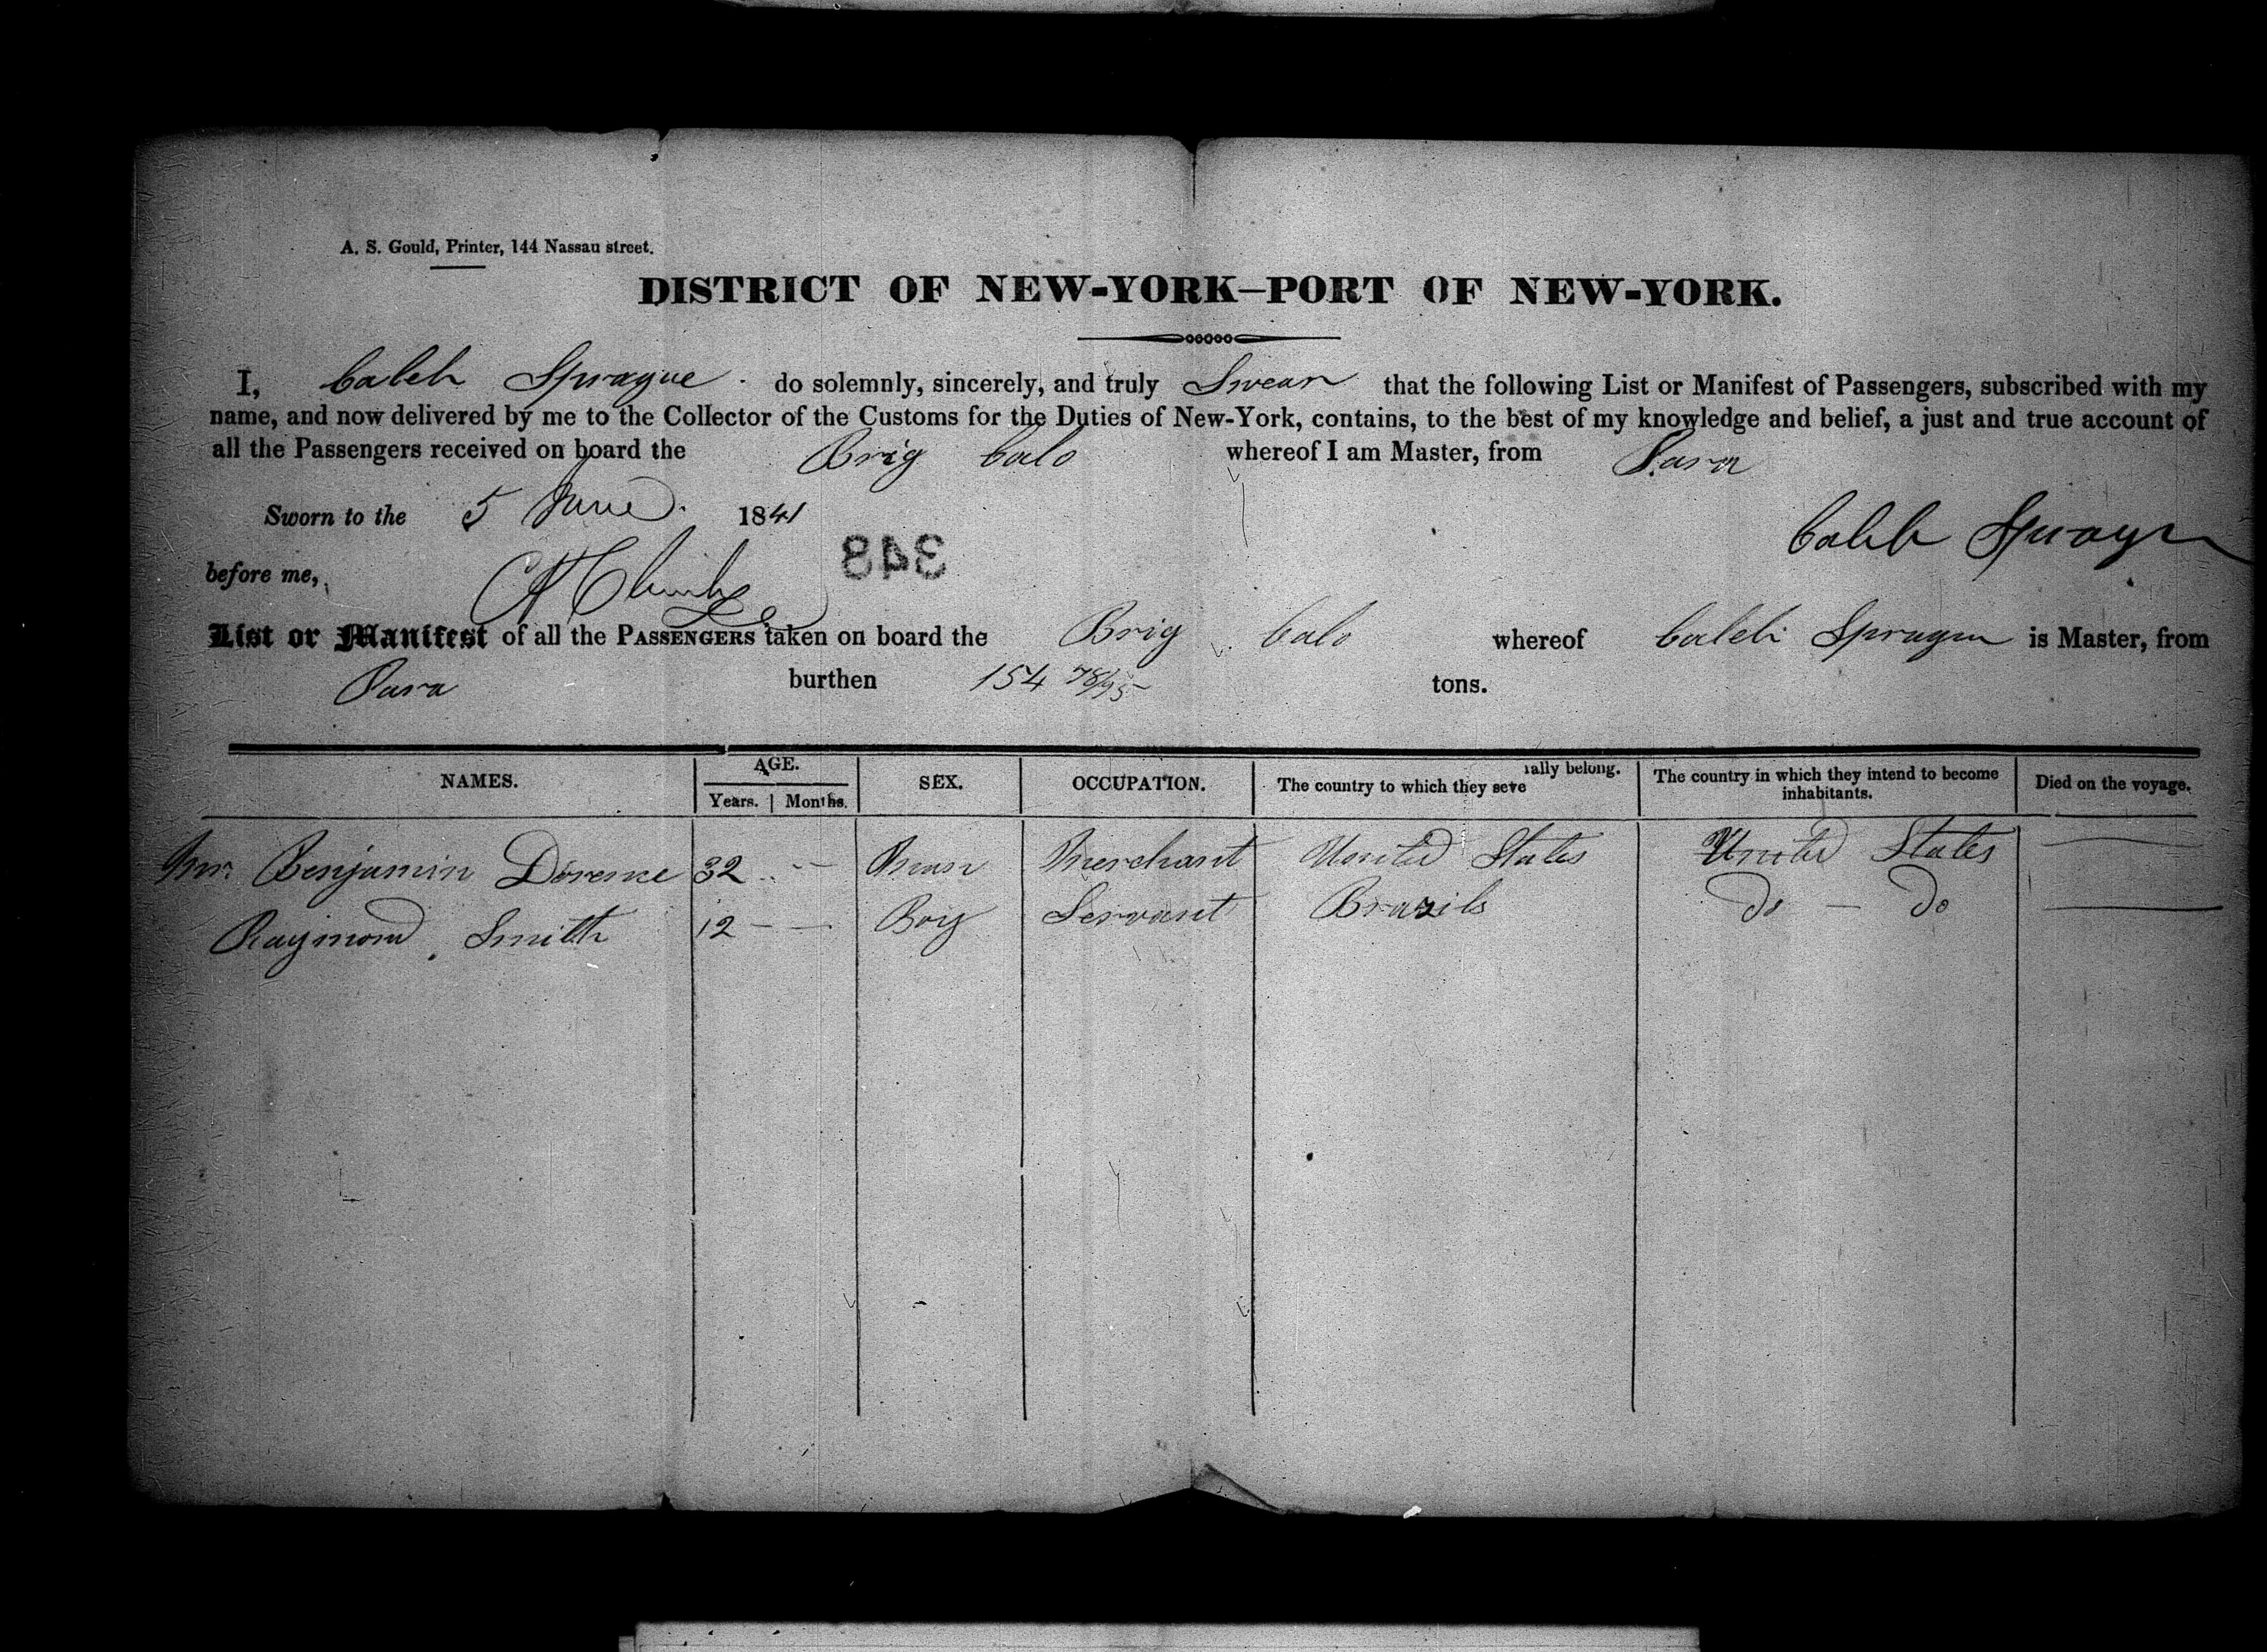 A. S. Gould, Printer, 144 Nassau street.
DISTRICT OF NEW-YORK—PORT OF NEW-YORK.
I, Caleb Sprague do solemnly, sincerely, and truly Swear that the following List or Manifest of Passengers, subscribed with my
name, and now delivered by me to the Collector of the Customs for the Duties of New-York, contains, to the best of my knowledge and belief, a just and true account of
all the Passengers received on board the Brig Calo whereof I am Master, from Para
Sworn to the 5 June 1841
Caleb Sprague
348
before me,
List or Manifest of all the PASSENGERS taken on board the Brig Calo whereof Caleb Sprague is Master, from
Para burthen 154 78/95 tons.
NAMES. AGE. SEX. OCCUPATION. The country to which they severally belong. The country in which they intend to become inhabitants. Died on the voyage.
Years. Months.
Mr. Benjamin 32 -- Man Merchant United States United States —
Raymond Smith 12 - - Boy Servant Brazils do - do —